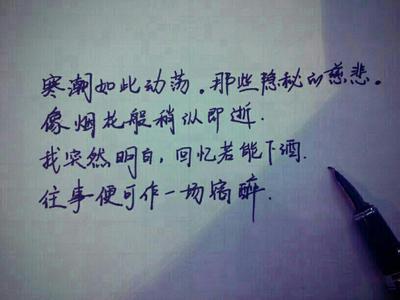 寒潮如此动荡。那些隐秘的慈悲。
像烟花般稍纵即逝.
我突然明白，回忆若能下酒.
往事便可作一场宿醉.